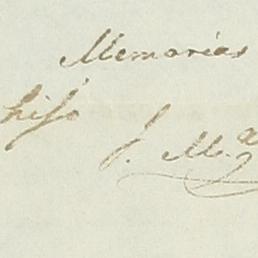 Memorias
hiso
J. M.a